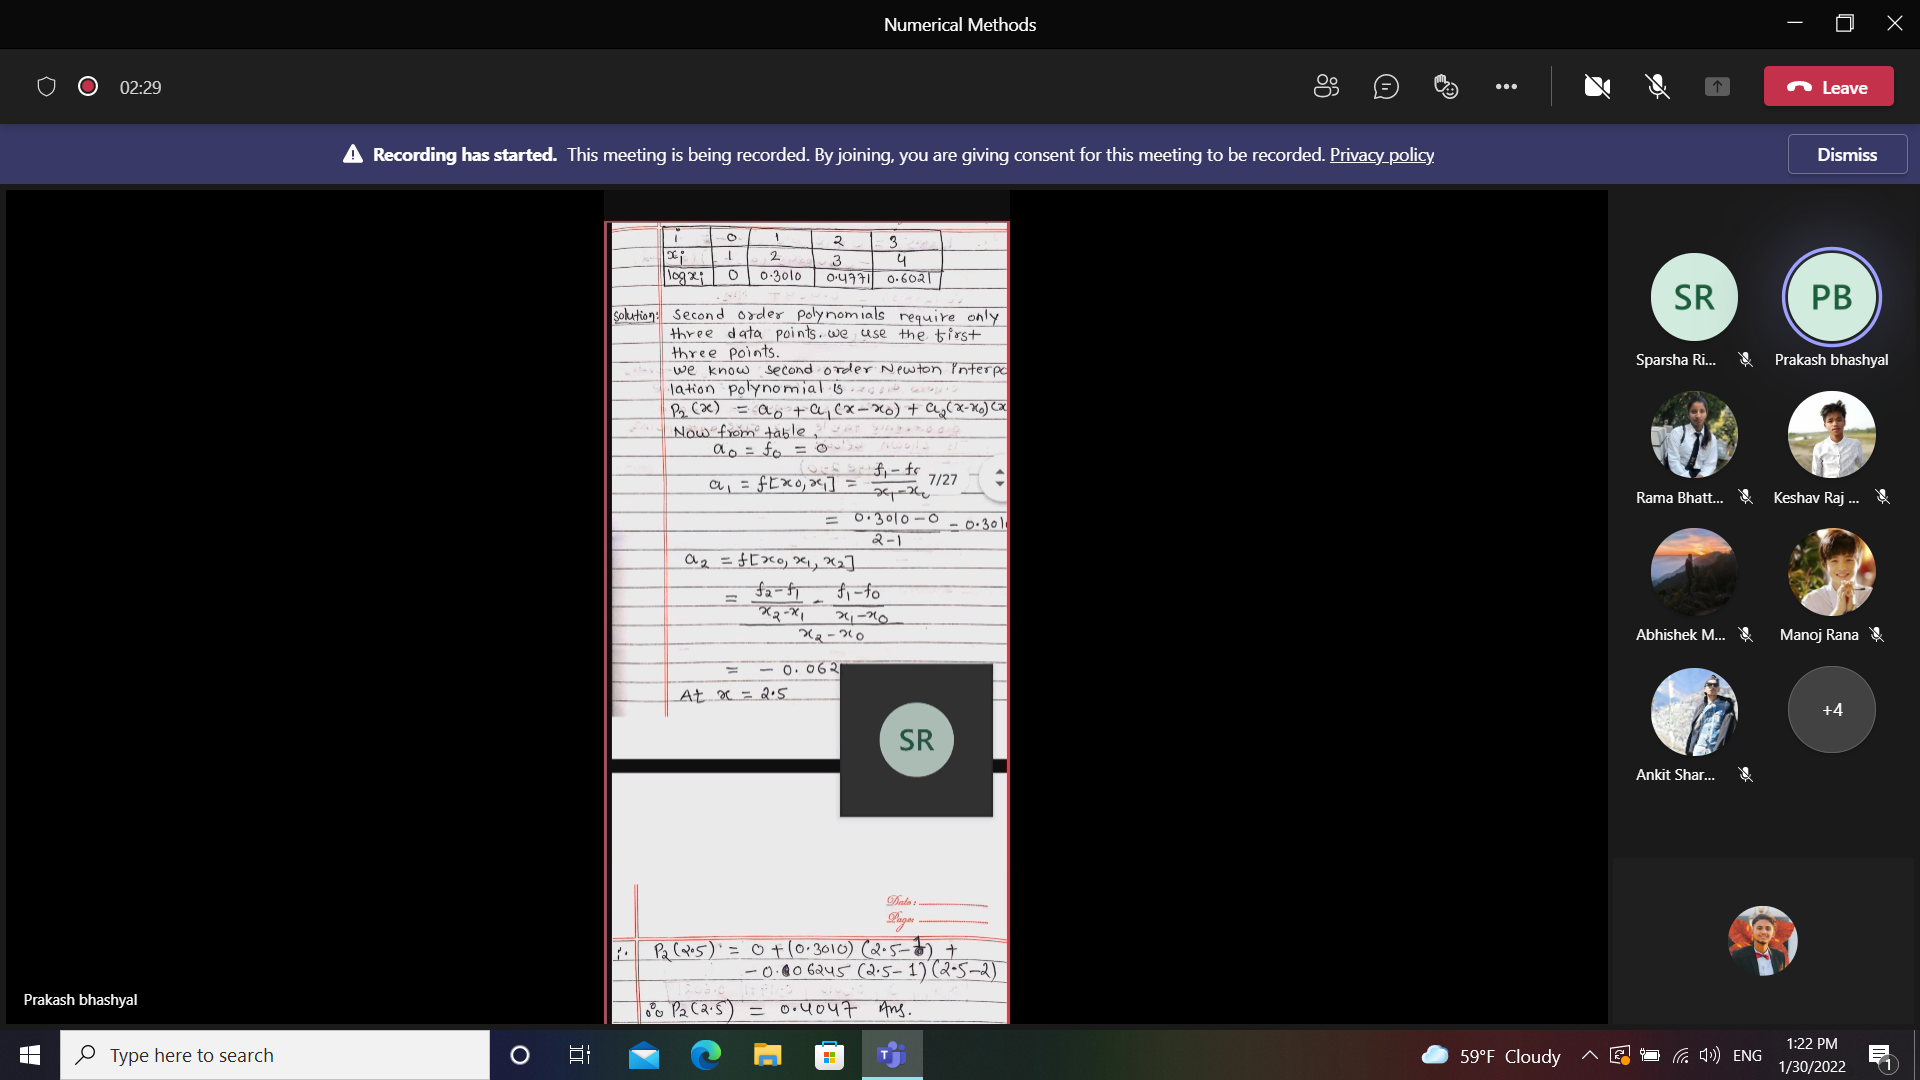 Numerical Methods
02:29
Leave
Recording has started. This meeting is being recorded. By joining, you are giving consent for this meeting to be recorded. Privacy policy
Dismiss
i 0 1 2 3
xi 1 2 3 4
logxi 0 0.3010 0.4771 0.6021
Solution: Second order polynomials require only
three data points. we use the first
three points.
we know second order Newton interpo
lation polynomial is
P2(x) = a0 + a1(x-x0) + a2(x-x0)(x
Now from table,
a0 = f0 = 0
a1 = f[x0, x1] = f1-f0 / x1-x0
7/27
= 0.3010-0 / 2-1 = 0.301
a2 = f[x0, x1, x2]
= f2-f1 / x2-x1 - f1-f0 / x1-x0
x2-x0
= - 0.062
At x = 2.5
SR
Date:
Page:
∴ P2(2.5) = 0 + (0.3010) (2.5-1) +
-0.06245 (2.5-1) (2.5-2)
∴ P2(2.5) = 0.4047 Ans.
Prakash bhashyal
SR
PB
Sparsha Ri...
Prakash bhashyal
Rama Bhatt...
Keshav Raj ...
Abhishek M...
Manoj Rana
Ankit Shar...
+4
Type here to search
59°F Cloudy
ENG
1:22 PM
1/30/2022
1